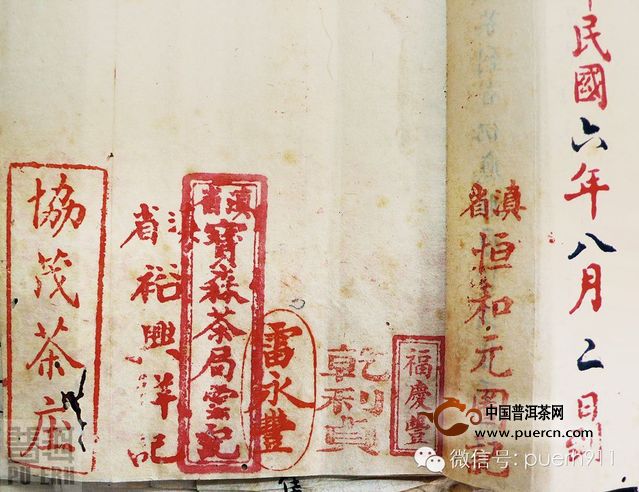 民國六年八月二日
滇省
恒和元
福慶豐
乾利貞
雷永豐
滇省
寶森茶局雲記
滇省
裕興祥記
協茂茶庄
中国普洱茶网
www.puercn.com
微信号: puern911